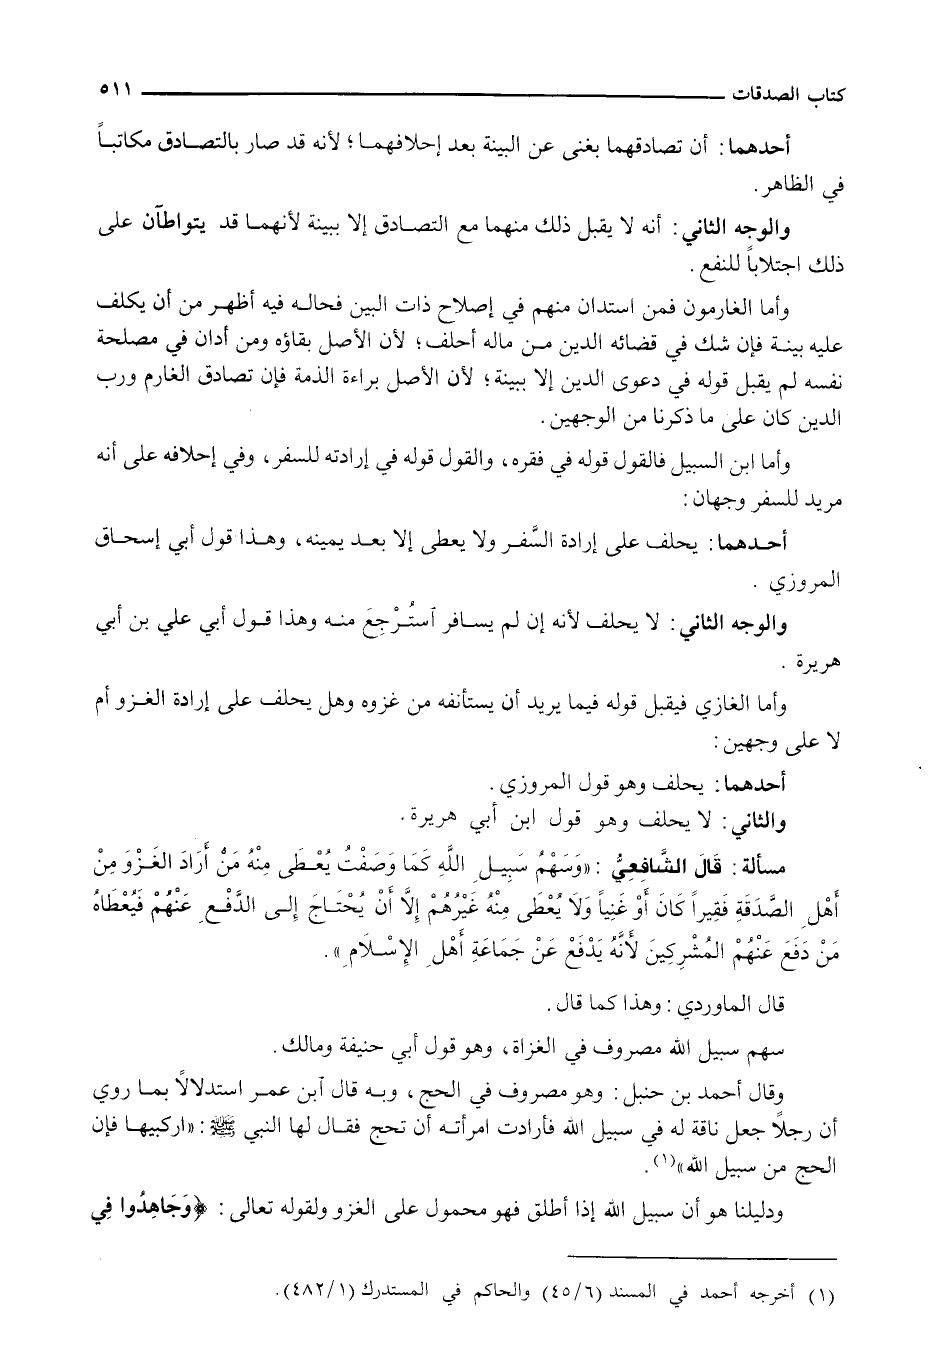 كتاب الصدقات ٥١١
أحدهما: أن تصادقهما بغنى عن البينة بعد إحلافهما؛ لأنه قد صار بالتصادق مكاتباً
في الظاهر.
والوجه الثاني: أنه لا يقبل ذلك منهما مع التصادق إلا ببينة لأنهما قد يتواطآن على
ذلك اجتلاباً للنفع.
وأما الغارمون فمن استدان منهم في إصلاح ذات البين فحاله فيه أظهر من أن يكلف
عليه بينة فإن شك في قضائه الدين من ماله أحلف؛ لأن الأصل بقاؤه ومن أدان في مصلحة
نفسه لم يقبل قوله في دعوى الدين إلا ببينة؛ لأن الأصل براءة الذمة فإن تصادق الغارم ورب
الدين كان على ما ذكرنا من الوجهين.
وأما ابن السبيل فالقول قوله في فقره، والقول قوله في إرادته للسفر، وفي إحلافه على أنه
مريد للسفر وجهان:
أحدهما: يحلف على إرادة السَّفر ولا يعطى إلا بعد يمينه، وهذا قول أبي إسحاق
المروزي.
والوجه الثاني: لا يحلف لأنه إن لم يسافر آستُرْجِعَ منه وهذا قول أبي علي بن أبي
هريرة.
وأما الغازي فيقبل قوله فيما يريد أن يستأنفه من غزوه وهل يحلف على إرادة الغزو أم
لا على وجهين:
أحدهما: يحلف وهو قول المروزي.
والثاني: لا يحلف وهو قول ابن أبي هريرة.
مسألة: قَالَ الشَّافِعِيُّ: «وَسَهْمُ سَبِيلِ اللَّهِ كَمَا وَصَفْتُ يُعْطَى مِنْهُ مَنْ أَرَادَ الغَزْوَ مِنْ
أَهْلِ الصَّدَقَةِ فَقِيراً كَانَ أَوْ غَنِياً وَلَا يُعْطَى مِنْهُ غَيْرُهُمْ إِلَّا أَنْ يُحْتَاجَ إِلى الدَّفْعِ عَنْهُمْ فَيُعْطَاهُ
مَنْ دَفَعَ عَنْهُمْ المُشْرِكِينَ لأَنَّهُ يَدْفَعُ عَنْ جَمَاعَةِ أَهْلِ الإِسْلَامِ».
قال الماوردي: وهذا كما قال.
سهم سبيل الله مصروف في الغزاة، وهو قول أبي حنيفة ومالك.
وقال أحمد بن حنبل: وهو مصروف في الحج، وبه قال آبن عمر استدلالاً بما روي
أن رجلاً جعل ناقة له في سبيل الله فأرادت امرأته أن تحج فقال لها النبي ﷺ: «اركبيها فإن
الحج من سبيل الله»(١).
ودليلنا هو أن سبيل الله إذا أطلق فهو محمول على الغزو ولقوله تعالى: ﴿وَجَاهِدُوا فِي
(١) أخرجه أحمد في المسند (٤٥/٦) والحاكم في المستدرك (٤٨٢/١).